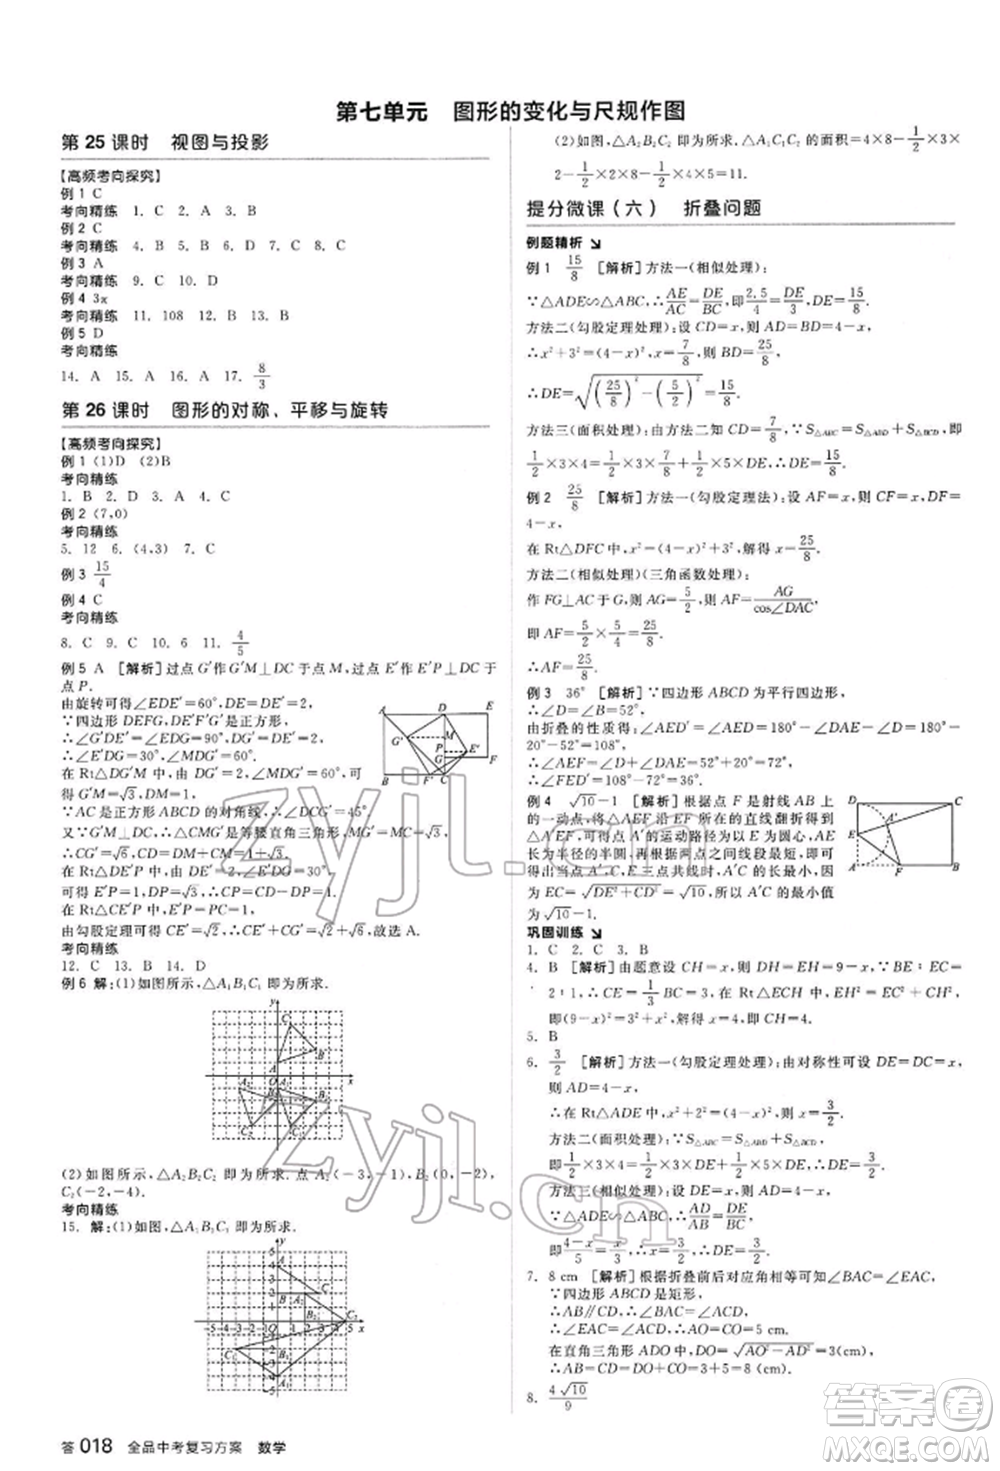 第七单元 图形的变化与尺规作图
第 25 课时 视图与投影
【高频考向探究】
例 1 C
考向精练 1. C 2. A 3. B
例 2 C
考向精练 4. B 5. B 6. B 7. C 8. C
例 3 A
考向精练 9. C 10. D
例 4 3π
考向精练 11. 108 12. B 13. B
例 5 D
考向精练
14. A 15. A 16. A 17. 8/3
第 26 课时 图形的对称、平移与旋转
【高频考向探究】
例 1 (1)D (2)B
考向精练
1. B 2. D 3. C 4. C
例 2 (7,0)
考向精练
5. 12 6. (4,3) 7. C
例 3 15/4
例 4 C
考向精练
8. C 9. C 10. 6 11. 4/5
例 5 A [解析]过点 G′作G′M⊥DC 于点 M,过点 E′作 E′P⊥DC 于
点 P.
由旋转可得∠EDE′=60°,DE=DE′=2,
∵四边形 DEFG,DE′F′G′是正方形,
∴DG′=DE′=2,∠G′DE′=90°,
∴∠E′DG=30°,∠MDG′=60°.
在 Rt△DG′M 中,DG′=2,∠MDG′=60°,
∴MG′=√3,DM=1.
∵AC 是正方形 ABCD 的对角线,∴∠DCG′=45°.
又∵G′M⊥DC,∴△CMG′是等腰直角三角形,∴CM=MG′=√3,
∴CG′=√6,∴CD=CM+DM=1+√3.
在 Rt△DPE′中,由 DE′=2,∠E′DG=30°,
可得 E′P=1,DP=√3,∴CP=CD-DP=1.
在 Rt△CE′P 中,CP=E′P=1,
由勾股定理可得 CE′=√2,∴CG′+CE′=√2+√6,故选 A.
考向精练
12. C 13. B 14. D
例 6 解:(1)如图所示,△A₁B₁C₁ 即为所求.
(2)如图所示,△A₂B₂C₂ 即为所求. 点 A₂(-3,-1),B₂(0,-2),
C₂(-2,-4).
考向精练
15. 解:(1)如图,△A₁B₁C₁ 即为所求.
(2)如图,△A₂B₂C₂ 即为所求,△A₂B₂C₂ 的面积=4×8-1/2×
2-1/2×2×8-1/2×4×5=11.
提分微课(六) 折叠问题
例题精析
例 1 15/8 [解析]方法一(相似处理):
∵△ADE∽△ABC,∴AE/AC=DE/BC,即2.5/4=DE/3,∴DE=15/8.
方法二(勾股定理处理):设 CD=x,则 AD=BD=4-x,
∴x²+3²=(4-x)²,∴x=7/8,则 BD=25/8,
∴DE=√((25/8)²-(5/2)²)=15/8.
方法三(面积处理):由方法二知 CD=7/8,∵S△ABC=S△ABD+S△BCD,即
1/2×3×4=1/2×3×7/8+1/2×5×DE,∴DE=15/8.
例 2 25/8 [解析]方法一(勾股定理法):设 AF=x,则 FC=x,DF=
4-x,
在 Rt△DFC 中,x²=(4-x)²+3²,解得 x=25/8.
方法二(相似处理)(三角函数处理):
作 FG⊥AC 于 G,则 AG=5/2,∴AF=AG/cos∠DAC,
即 AF=5/2×5/4=25/8.
∴AF=25/8.
例 3 36° [解析]∵四边形 ABCD 为平行四边形,
∴∠D=∠B=52°.
由折叠的性质得:∠AED′=∠AED=180°-∠DAE-∠D=180°-
20°-52°=108°,
∴∠AEF=∠D+∠DAE=52°+20°=72°,
∴∠FED′=108°-72°=36°.
例 4 √10-1 [解析]根据点 F 是射线 AB 上
的一动点,将△AEF 沿 EF 所在的直线翻折得到
△A′EF,可得点 A′的运动路径为以 E 为圆心,AE
长为半径的半圆,再根据两点之间线段最短,可
得出当点 A′,C,E 三点共线时,A′C 的长最小,因
为 CE=√(DE²+CD²)=√10,所以 A′C 的最小值
为√10-1.
巩固训练
1. C 2. C 3. B
4. B [解析]由题意设 CH=x,则 DH=EH=9-x,∵BE∶EC=
2∶1,∴CE=1/3BC=3,∴在 Rt△ECH 中,EH²=EC²+CH²,
即(9-x)²=3²+x²,解得 x=4,即 CH=4.
5. B
6. 3/2 [解析]方法一(勾股定理处理):由对称性可设 DE=DC=x,
则 AD=4-x,
∴在 Rt△ADE 中,x²+2²=(4-x)²,∴x=3/2.
方法二(面积处理):∵S△ABC=S△ABD+S△BCD,
即1/2×3×4=1/2×5×DE+1/2×3×DE,∴DE=3/2.
方法三(相似处理):∵△ADE∽△ABC,∴AD/AB=DE/BC,
即(4-x)/5=x/3,∴x=3/2,∴DE=3/2.
7. 8 cm [解析]根据折叠前后对应角相等可知△BAC≌△EAC,
∵四边形 ABCD 是矩形,
∴AB∥CD,∴∠BAC=∠ACD,
∴∠EAC=∠ACD,∴AO=CO=5 cm,
在直角三角形 ADO 中,DO=√(AO²-AD²)=3 cm,
∴AB=CD=DO+CO=3+5=8(cm).
8. 4√10/9
答 018 全品中考复习方案 数学